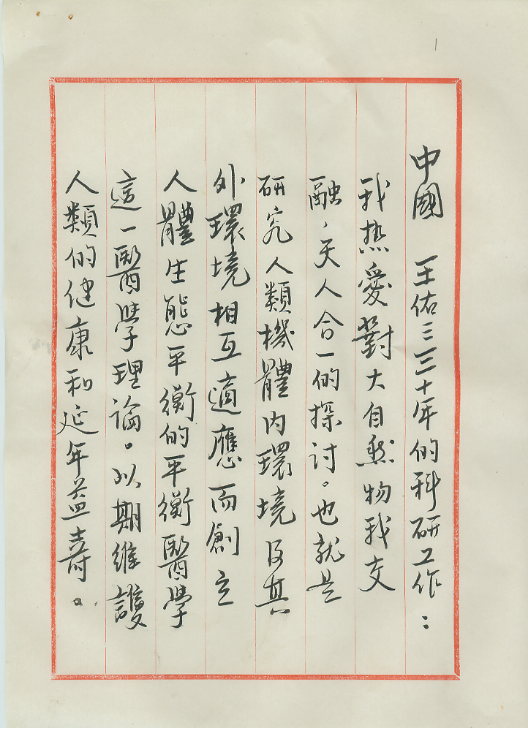 1
中國 王佑三三十年的科研工作：
我热愛對大自然物我交
融，天人合一的探討。也就是
研究人類機體内環境及其
外環境相互適應而創立
人體生態平衡的平衡醫學
這一醫學理論。以期維護
人類的健康和延年益壽。